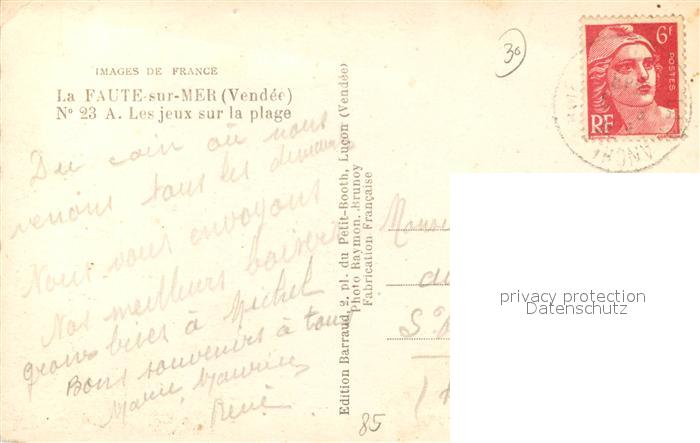 IMAGES DE FRANCE
La FAUTE-sur-MER (Vendée)
N° 23 A. Les jeux sur la plage
Du coin où nous
venons tous les dimanches
Nous vous envoyons
Nos meilleurs baisers
gros bises à Michel
Bons souvenirs à tous
Marie, Maurice,
René
Edition Barraud, 2, pl. du Petit-Booth, Luçon (Vendée)
Photo Raymon, Brunoy
Fabrication Française
30
6f
POSTES
RF
privacy protection
Datenschutz
85